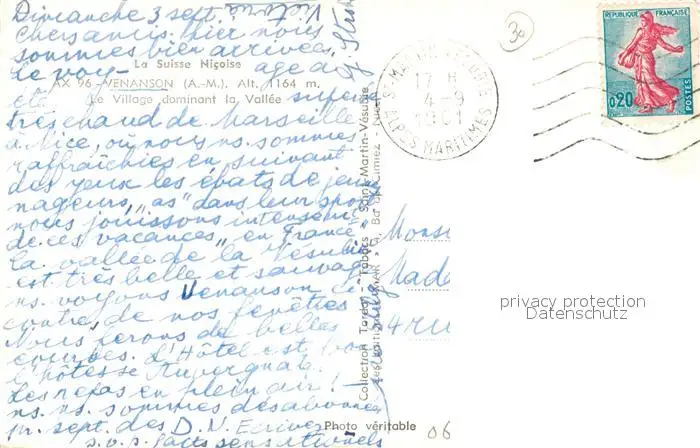 Dimanche 3 sept.
Chers amis, hier nous
sommes bien arrivées.
La Suisse Niçoise
Le voy- age a
AX 96 - VENANSON (A.-M.), Alt. 1164 m.
été super
Le Village dominant la Vallée
très chaud de Marseille
à Nice, où nous ns. sommes
raffraîchies en suivant
des yeux les ébats de jeunes
nageurs, "as" dans leur sport
nous jouissons intensém.
de ces vacances en France
la vallée de la Vésubie
est très belle et sauvage
ns. voyons Venanson de
contre de nos fenêtres
Nous ferons de belles
courses. L'Hôtel est bon
l'hôtesse Auvergnate.
Les repas en plein air!
ns. ns. sommes désabonnées
pr. sept. des D.N. Ecrivez
s.v.p. faits sensationnels
Photo véritable
Collection Tardy - Tabacs - Saint-Martin-Vésubie
ST MARTIN VESUBIE
17 H
4-9
1961
ALPES MARITIMES
REPUBLIQUE FRANÇAISE
0,20
POSTES
30
Mons
Mada
privacy protection
Datenschutz
06